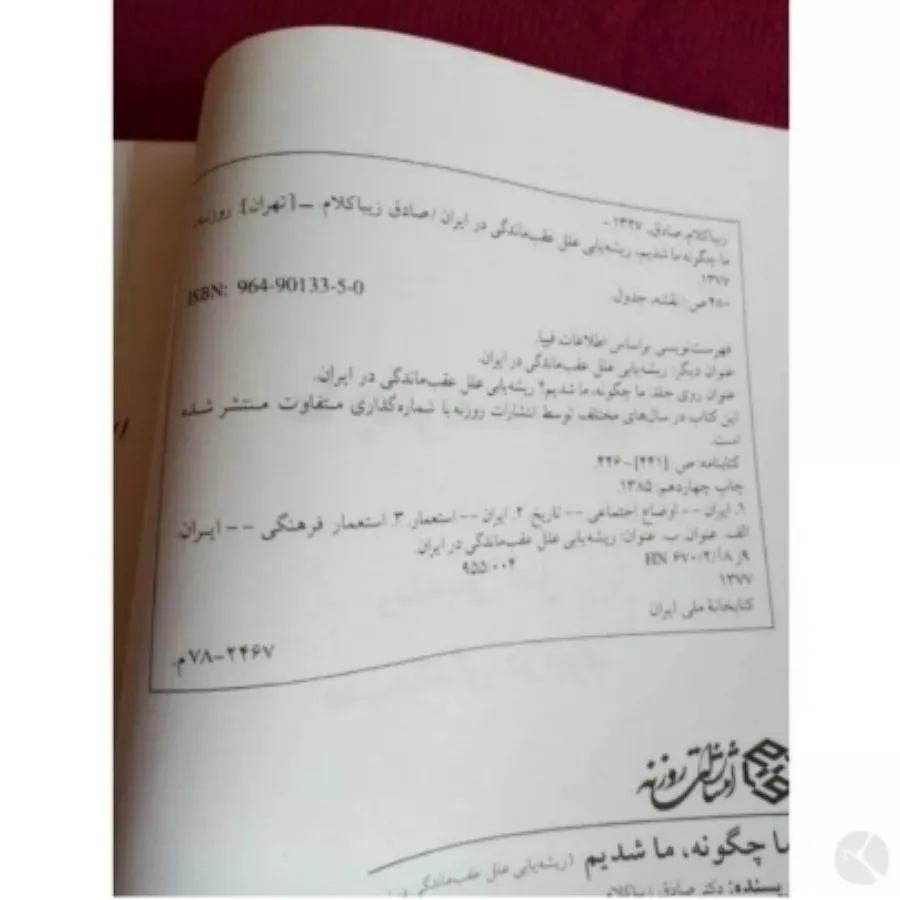 زیباکلام، صادق، ۱۳۲۷ -
ما چگونه ما شدیم، ریشه‌یابی علل عقب‌ماندگی در ایران / صادق زیباکلام. ــ [تهران]: روزنه،
۱۳۷۷.
۴۸۰ص.: نقشه، جدول.
ISBN: 964-90133-5-0
فهرست‌نویسی براساس اطلاعات فیپا.
عنوان دیگر: ریشه‌یابی علل عقب‌ماندگی در ایران.
عنوان روی جلد: ما چگونه، ما شدیم؟ ریشه‌یابی علل عقب‌ماندگی در ایران.
این کتاب در سال‌های مختلف توسط انتشارات روزنه با شماره‌گذاری متفاوت منتشر شده
است.
کتابنامه: ص. [۴۴۱] - ۴۴۶.
چاپ چهاردهم: ۱۳۸۵.
۱. ایران -- اوضاع اجتماعی -- تاریخ. ۲. ایران -- استعمار. ۳ استعمار فرهنگی -- ایران.
الف. عنوان. ب. عنوان: ریشه‌یابی علل عقب‌ماندگی در ایران.
۹ز۸آ/ HN ۶۷۰/۲ ۹۵۵/۰۰۴
۱۳۷۷
کتابخانهٔ ملی ایران
۷۸-۲۴۶۷م.
انتشارات روزنه
ما چگونه، ما شدیم (ریشه‌یابی علل عقب‌ماندگی در
نویسنده: دکتر صادق زیباکلام